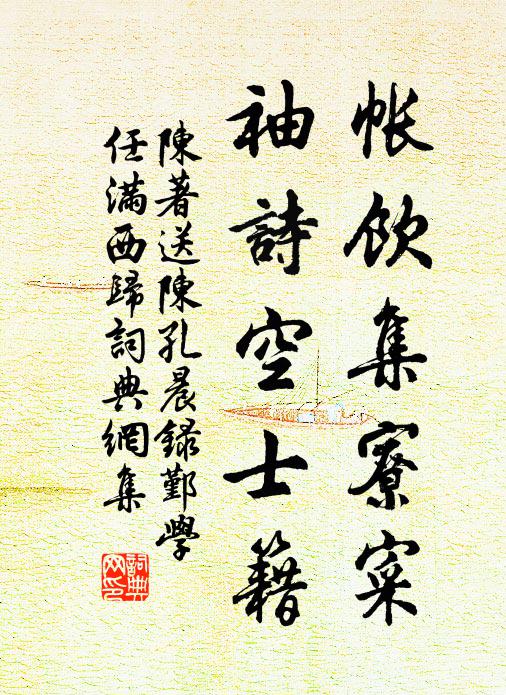 帐饮集寮寀
袖詩空士籍
陳著送陳孔晨錄鄞學
任滿西歸詞典網集
詞典网印